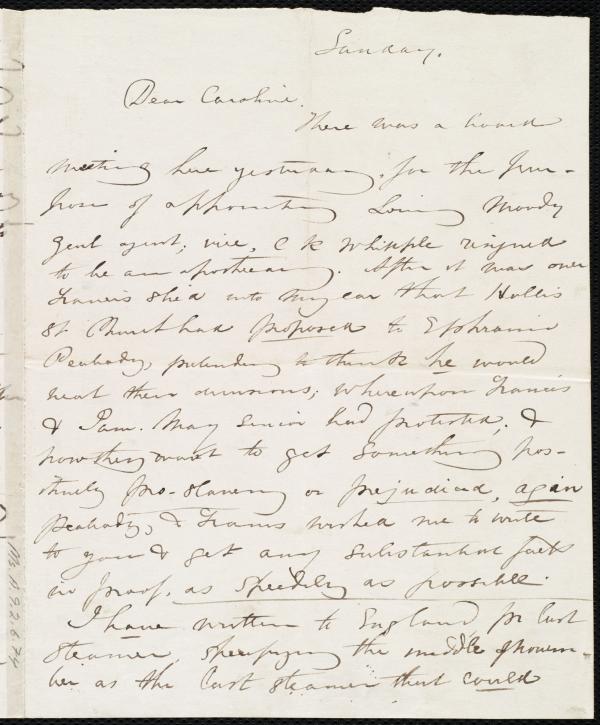 Sunday.
Dear Caroline.
There was a board
meeting here yesterday, for the pur-
pose of appointing Loring Moody
Genl agent; vice, C K Whipple resigned
to be an apothecary. After it was over
Francis shed into my ear that Hollis
St Church had proposed to Ephraim
Peabody, pretending to think he would
heal their divisions; whereupon Francis
& Sam. May senior had protested, &
now they want to get something pos-
itively pro-slavery or prejudiced, again
Peabody, & Francis wished me to write
to you & get any substantial facts
in proof, as speedily as possible.
I have written to England pr last
steamer, specifying the middle of Novem-
ber as the last steamer that could